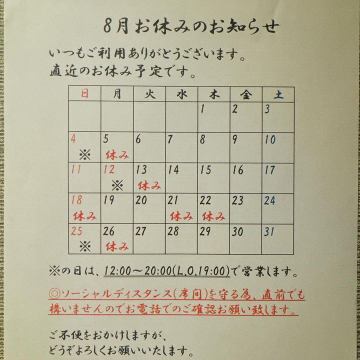 8月お休みのお知らせ
いつもご利用ありがとうございます。
直近のお休み予定です。
日 月 火 水 木 金 土
1 2 3
4 5 6 7 8 9 10
※ 休み
11 12 13 14 15 16 17
※ 休み
18 19 20 21 22 23 24
休み 休み 休み
25 26 27 28 29 30 31
※ 休み
※の日は、12:00~20:00(L,O,19:00)で営業します。
◎ソーシャルディスタンス(席間)を守る為、直前でも
構いませんのでお電話でのご確認お願い致します。
ご不便をおかけしますが、
どうぞよろしくお願いいたします。